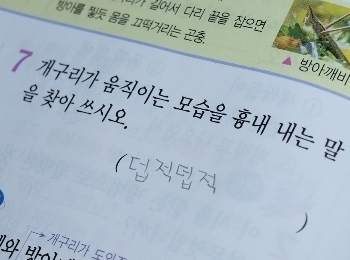 리가 길어서 다리 끝을 잡으면
방아를 찧듯 몸을 끄떡거리는 곤충.
▲ 방아깨비
7 개구리가 움직이는 모습을 흉내 내는 말
을 찾아 쓰시오.
(덥적덥적)
개구리가